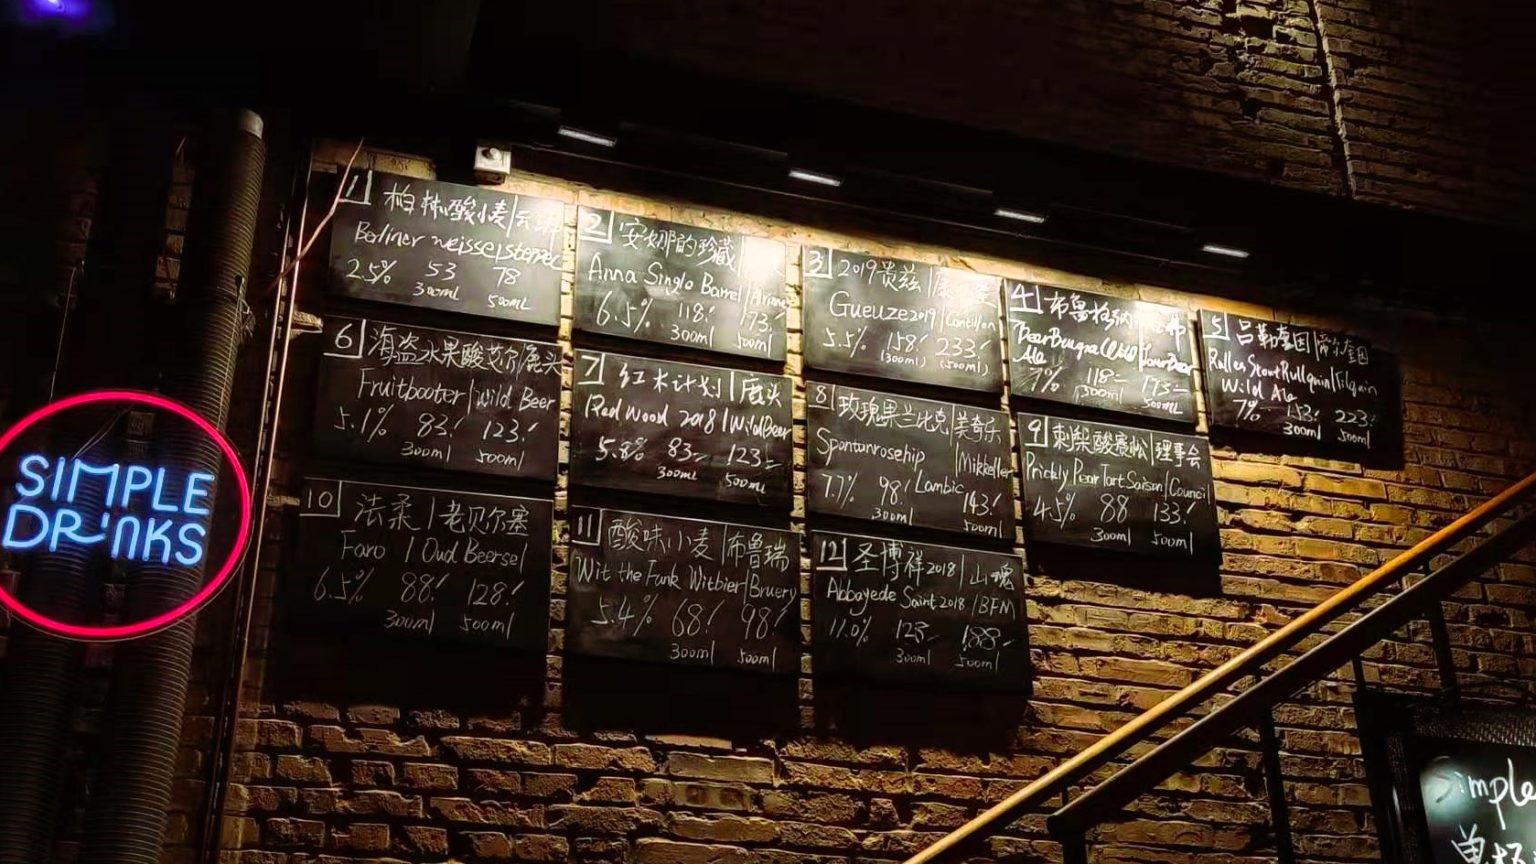 SIMPLE
DRINKS
1 柏林酸小麦
Berliner weisse
2.5% 53 78
300mL 500mL
2 安娜的珍藏
Anna Single Barrel
6.5% 118! 173!
300ml 500ml
3 2019贵兹
Gueuze 2019 | Cantillon
5.5% 158! 233!
(300ml) (500ml)
4
Ale
7% 118- 173-
300ml 500ml
5 吕勒奎因
Wild Ale
7% 153! 223!
300ml 500ml
6 海盗水果酸艾尔 鹿头
Fruitbooter | Wild Beer
5.1% 83! 123!
300ml 500ml
7 红木计划 | 鹿头
Red Wood 2018 | Wild Beer
5.8% 83- 123-
300mL 500mL
8 玫瑰果兰比克 | 美奇乐
Spontanrosehip | Mikkeller
Lambic
7.7% 98! 143!
300ml 500ml
9 刺梨酸赛松 | 理事会
Prickly Pear Tart Saison | Council
4.5% 88 133!
300ml 500ml
10 法柔 | 老贝尔塞
Faro | Oud Beersel
6.5% 88! 128!
300ml 500ml
11 酸味小麦 | 布鲁瑞
Wit the Funk Witbier | Bruery
5.4% 68! 98!
300ml 500ml
12 圣博祥2018 | 山魂
Abbayede Saint 2018 | BFM
11.0% 128- 188-
300ml 500ml
Simple